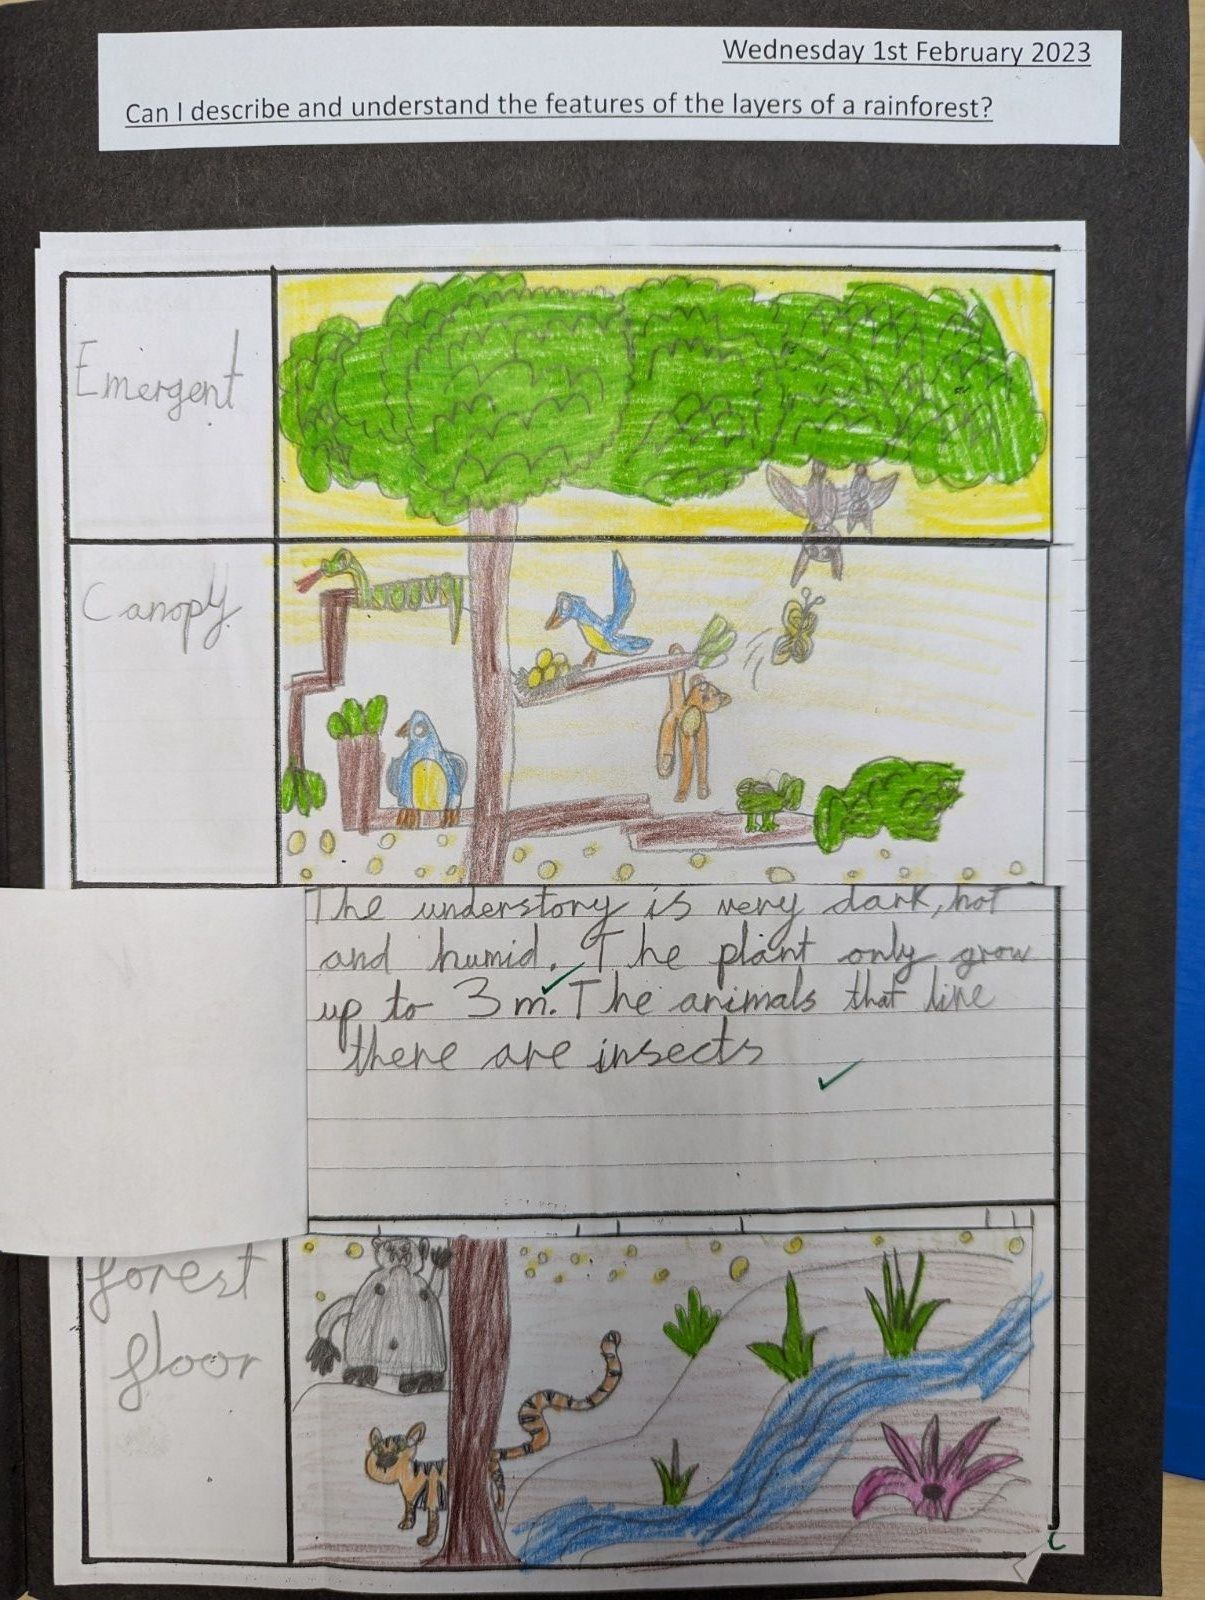 Wednesday 1st February 2023
Can I describe and understand the features of the layers of a rainforest?
Emergent
Canopy
The understory is very dark, hot
and humid. The plant only grow
up to 3 m. The animals that live
there are insects
forest
floor